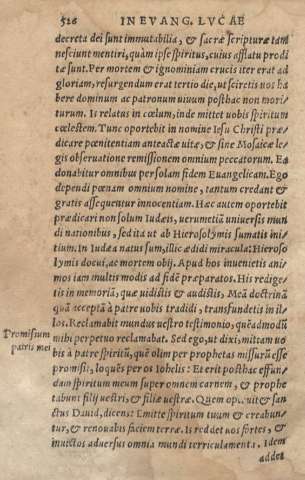 526 IN EVANG. LVCAE
decreta dei sunt immutabilia, & sacræ scripturæ tam
nesciunt mentiri, quàm ipse spiritus, cuius afflatu prodi
tæ sunt. Per mortem & ignominiam crucis iter erat ad
gloriam, resurgendum erat tertio die, ut sciretis uos ha
bere dominum ac patronum uiuum posthac non mori/
turum. Is relatus in cœlum, inde mittet uobis spiritum
cœlestem. Tunc oportebit in nomine Iesu Christi præ/
dicare pœnitentiam anteactæ uitæ, & sine Mosaicæ le/
gis obseruatione remissionem omnium peccatorum. Ea
donabitur omnibus per solam fidem Euangelicam. Ego
dependi pœnam omnium nomine, tantum credant &
gratis assequentur innocentiam. Hæc autem oportebit
prædicari non solum Iudæis, uerumetiã uniuersis mun
di nationibus, sed ita ut ab Hierosolymis sumatis ini/
tium. In Iudæa natus sum, illic ædidi miracula: Hieroso
lymis docui, ac mortem obij. Apud hos inuenietis ani/
mos iam multis modis ad fidẽ præparatos. His redige/
tis in memoriã, quæ uidistis & audistis. Meã doctrinã
quã acceptã à patre uobis tradidi, transfundetis in il/
los. Reclamabit mundus uestro testimonio, quẽadmodũ
Promissum
patris mei
mihi perpetuo reclamabat. Sed ego, ut dixi, mittam uo
bis à patre spiritũ, quẽ olim per prophetas missurũ esse
promisi, loquẽs per os Iohelis: Et erit posthac effun/
dam spiritum meum super omnem carnem, & prophe
tabunt filij uestri, & filiæ uestræ. Quem & san/
ctus Dauid, dicens: Emitte spiritum tuum & creabun/
tur, & renouabis faciem terræ. Is reddet uos fortes, &
inuictos aduersus omnia mundi terriculamenta. Idem
addet